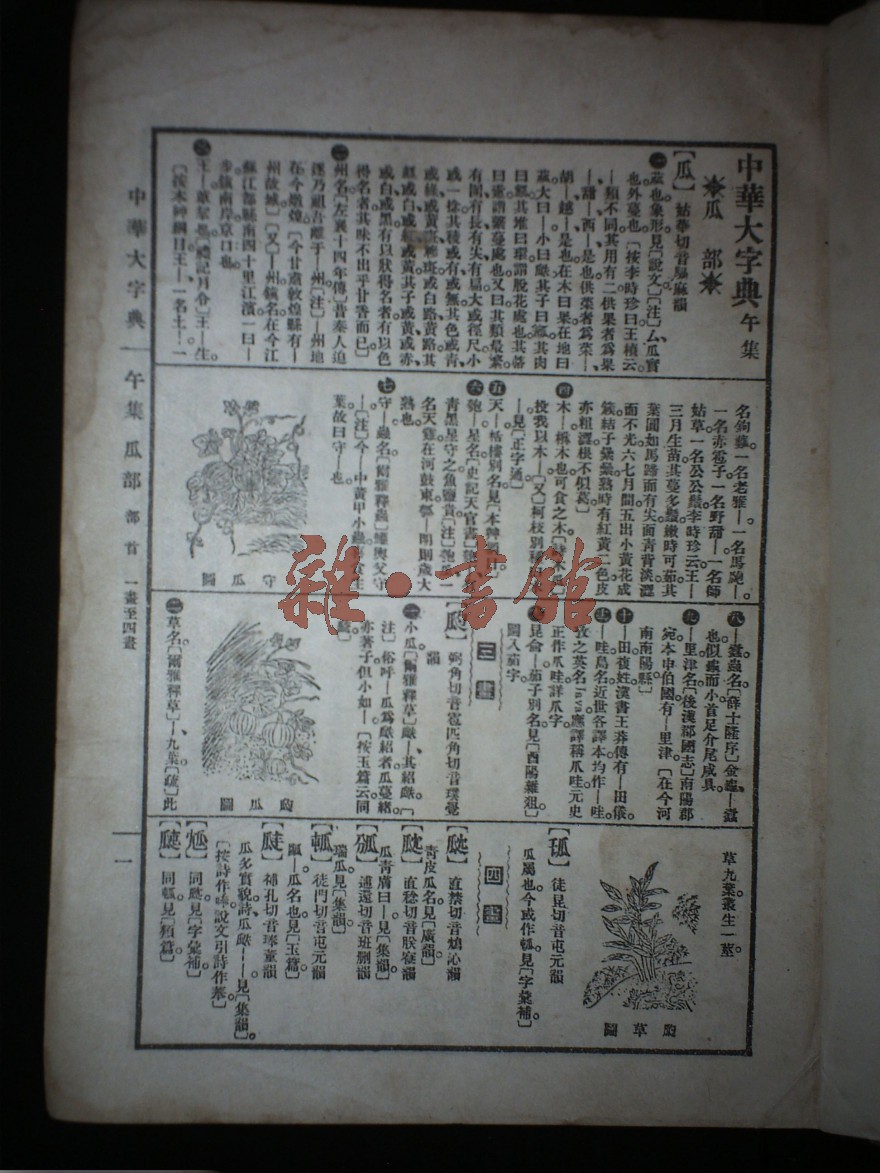 中華大字典 午集
瓜部
【瓜】姑華切音騧麻韻
一 蓏也象形見[說文][注]厶瓜實
也外蔓也[按李時珍曰王禎云
瓜類不同其用有二供果者爲果
—甜—西—是也供菜者爲菜—
胡—越—是也在木曰果在地曰
蓏大曰—小曰瓞其子曰㼓其肉
曰瓤其
曰疐謂繫蔓處也又曰其類最繁
有團有長有尖有扁大或徑尺小
或一捻其稜或有或無其色或青
或綠或黃
或白路黃路其
紅或白或黑
其子或黃或赤
或白或黑有以狀得名者有以色
得名者其味不出乎甘香而已]
二 州名[左襄十四年傳]昔秦人迫
逐乃祖吾離于—州[注]—州地
在今燉煌[今甘肅敦煌縣有—
州故城][又]—州鎮名在今江
蘇江都縣南四十里江濱一曰—
步鎮南岸京口也
三 王—
[禮記月令]王—生
[按本艸綱目王—一名土—一
名鉤
一名老雅—一名馬
一名赤雹子一名野甜—一名師
姑草一名公公鬚李時珍云王—
三月生苗其蔓多鬚嫩時可茹其
葉圓如馬蹄而有尖面青背淡澀
而不光六七月間五出小黃花成
簇結子纍纍熟時有紅黃二色皮
亦粗澀根不似葛]
四 木—楙木也可食之木
投我以木—[又]
—見[正字通]
五 天—栝樓別名見[本艸綱目]
六 匏—星名[史記天官書]匏
青黑星守之魚鹽貴[注]匏—一
名天雞在河鼓東
明則歲大
熟也
七 守—蟲名[爾雅釋蟲]蠸輿父守
—[注]今—中黃甲小蟲
葉故曰守—也
守瓜圖
八 —蠽蟲名[薛士隆序]
也似
而小首足介尾咸具
九 —里津名[後漢郡國志]南陽郡
宛本申伯國有—里津[在今河
南南陽縣]
十 —田複姓漢書王莽傳有—田儀
土 —哇島名近世各譯本均作—哇
攷之英名Java應譯稱爪哇元史
正作爪哇詳爪字
昆侖—茄子別名見[酉陽雜俎]
闕入茄字
三畫
【瓝】弼角切音雹匹角切音璞覺
韻
一 小瓜[爾雅釋草]瓞—其紹瓞[
注]俗呼—瓜爲瓞紹者瓜蔓緒
亦著子但小如—[按玉篇云同
瓝瓜圖
二 草名[爾雅釋草]—九葉[疏]此
草九葉叢生一莖
瓝草圖
徒昆切音屯元韻
瓜屬也今或作
見[字彙補]
四畫
直禁切音鴆沁韻
青皮瓜名見[廣韻]
直稔切音朕寑韻
瓜青膚曰—見[集韻]
逋還切音班刪韻
瑞瓜見[集韻]
徒門切音屯元韻
瓜名也見[玉篇]
補孔切音琫董韻
瓜多實貌詩瓜瓞——見[集韻]
[按詩作唪說文引詩作菶]
同瓞見[字彙補]
見[類篇]
中華大字典 午集 瓜部 部首 一畫至四畫 一
雜·書館